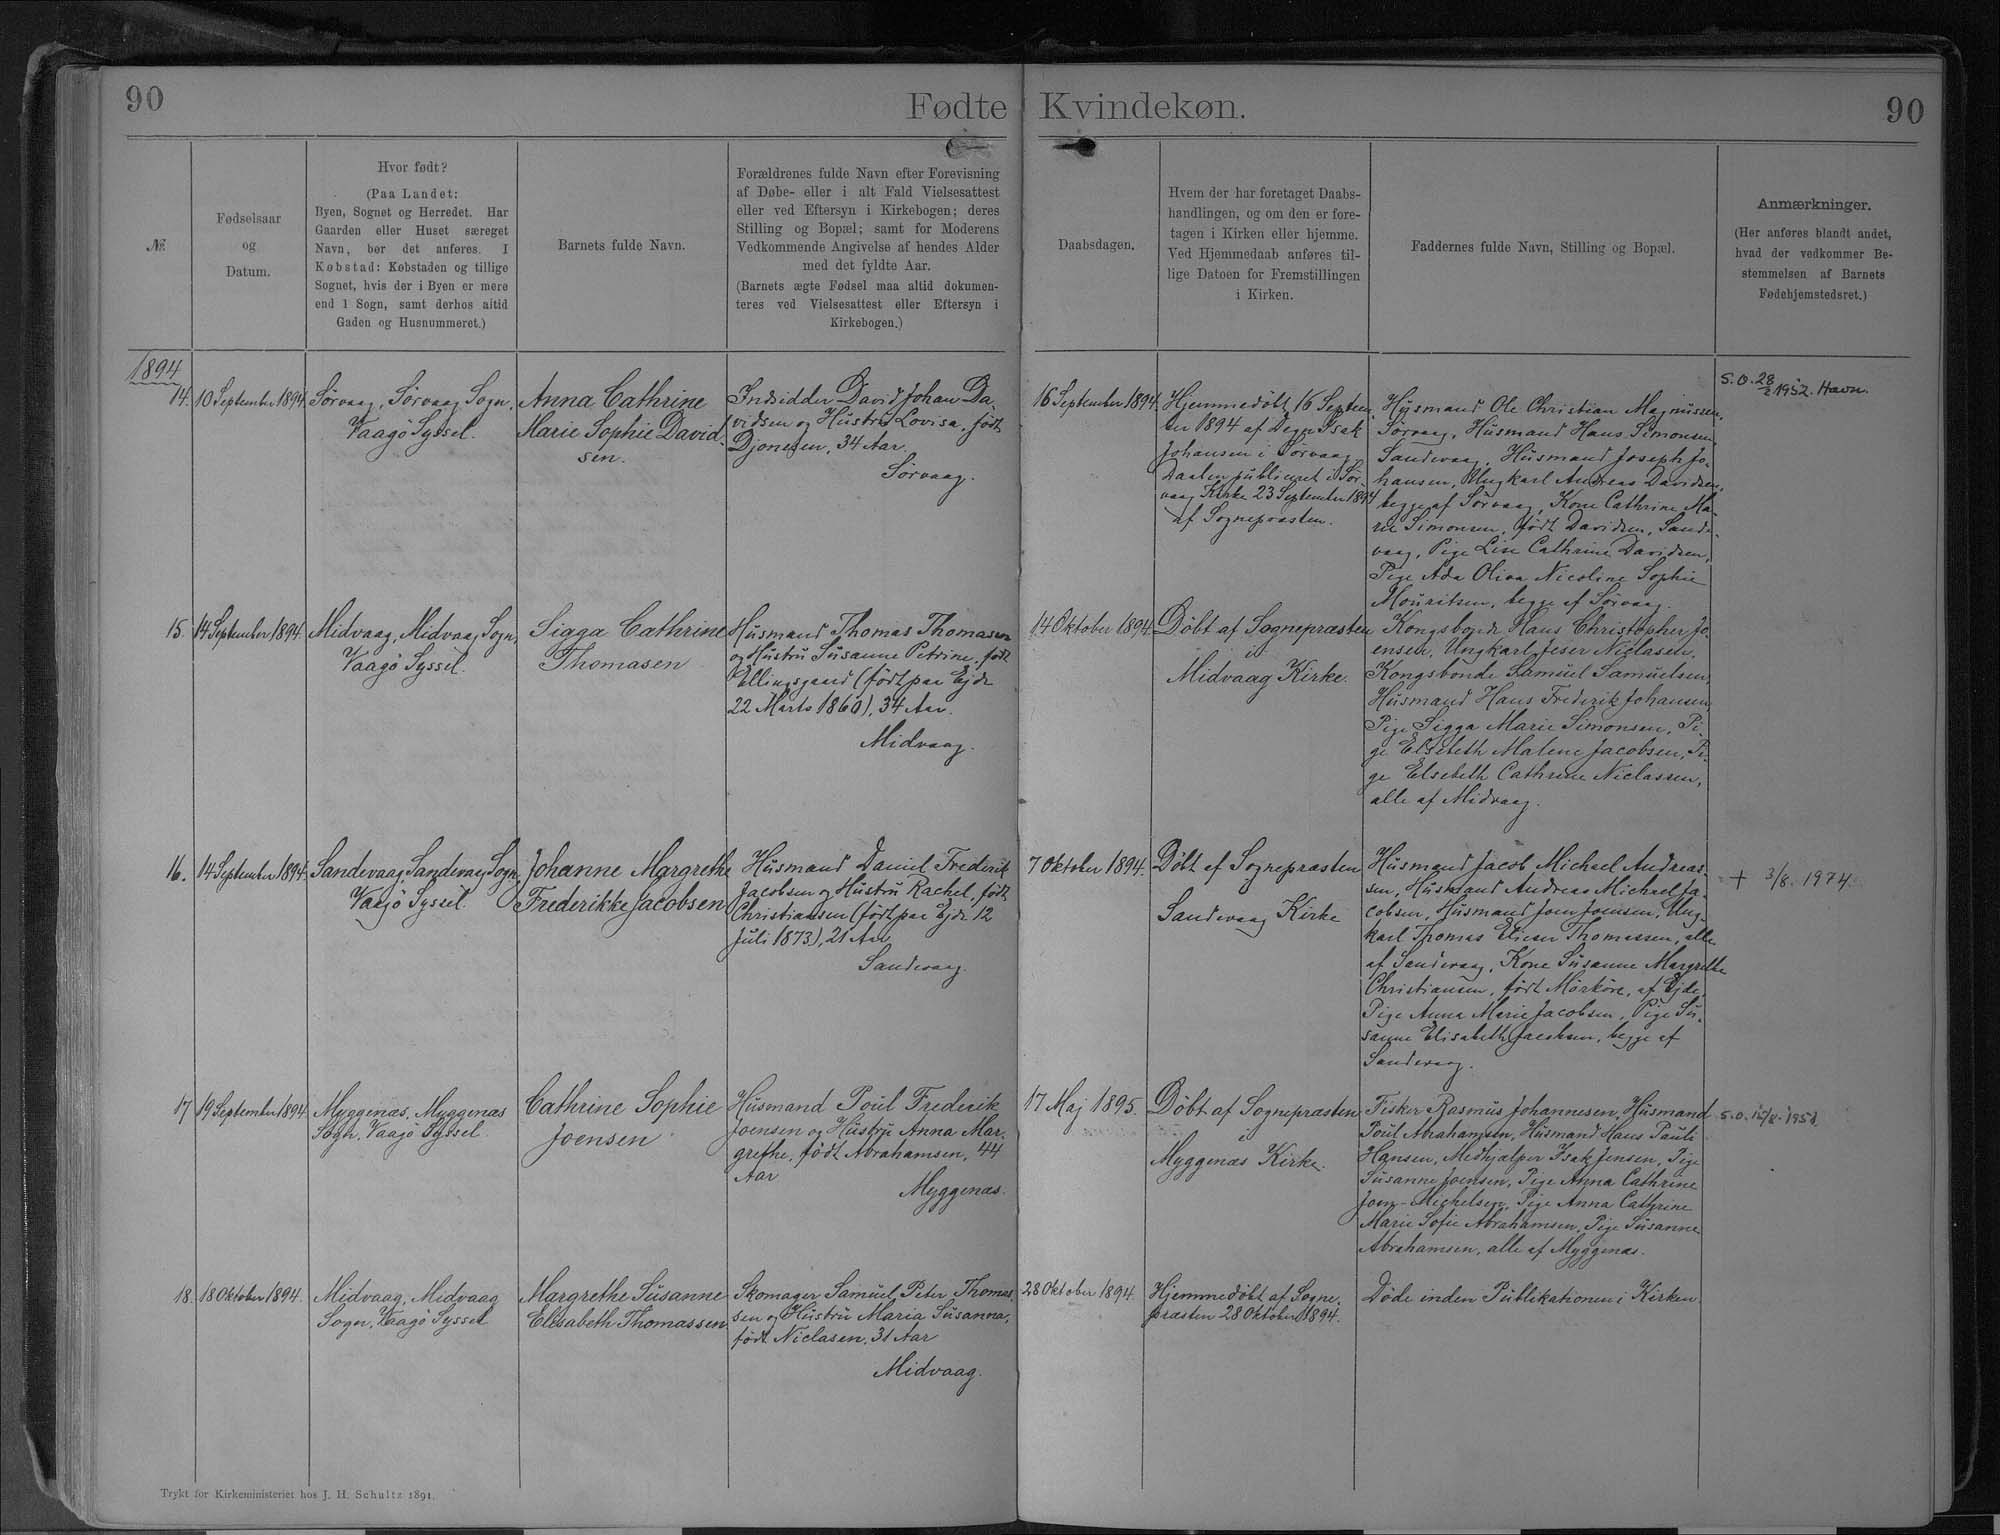 90
Fødte Kvindekøn.
90
№
Fødselsaar
og
Datum.
Hvor født?
(Paa Landet:
Byen, Sognet og Herredet. Har
Gaarden eller Huset særeget
Navn, bør det anføres. I
Købstad: Købstaden og tillige
Sognet, hvis der i Byen er mere
end 1 Sogn, samt derhos altid
Gaden og Husnummeret.)
Barnets fulde Navn.
Forældrenes fulde Navn efter Forevisning
af Døbe- eller i alt Fald Vielsesattest
eller ved Eftersyn i Kirkebogen; deres
Stilling og Bopæl; samt for Moderens
Vedkommende Angivelse af hendes Alder
med det fyldte Aar.
(Barnets ægte Fødsel maa altid dokumen-
teres ved Vielsesattest eller Eftersyn i
Kirkebogen.)
Daabsdagen.
Hvem der har foretaget Daabs-
handlingen, og om den er fore-
tagen i Kirken eller hjemme.
Ved Hjemmedaab anføres til-
lige Datoen for Fremstillingen
i Kirken.
Faddernes fulde Navn, Stilling og Bopæl.
Anmærkninger.
(Her anføres blandt andet,
hvad der vedkommer Be-
stemmelsen af Barnets
Fødehjemstedsret.)
1894
14.
10 September 1894.
Sørvaag, Sørvaag Sogn,
Vaagø Syssel.
Anna Cathrine
Marie Sophie David-
sen.
Indsidder David Johan Da-
vidsen og Hustru Lovisa, født
Djonesen, 34 Aar.
Sørvaag.
16 September 1894.
Hjemmedøbt 16 Septem-
ber 1894 af Degn Isak
Johansen i Sørvaag.
Daaben publiceret i Sør-
vaag Kirke 23 September 1894
af Sognepræsten.
Husmand Ole Christian Magnussen,
Sørvaag, Husmand Hans Simonsen
Sandevaag, Husmand Joseph Jo-
hansen, Ungkarl Andreas Davidsen,
begge af Sørvaag, Kone Cathrine Ma-
rie Simonsen, født Davidsen, Sande-
vaag, Pige Lise Cathrine Davidsen,
Pige Ada Oliva Nicoline Sophie
Mouritsen, begge af Sørvaag.
S.O. 28/2 1952. Havn.
15.
14 September 1894.
Midvaag, Midvaag Sogn,
Vaagø Syssel.
Sigga Cathrine
Thomasen
Husmand Thomas Thomasen
og Hustru Susanne Petrine, født
Ellingsgaard (født paa Ejde
22 Marts 1860), 34 Aar.
Midvaag.
14 Oktober 1894.
Døbt af Sognepræsten
i
Midvaag Kirke.
Kongsbonde Hans Christopher Jo-
ensen, Ungkarl Jeser Niclasen,
Kongsbonde Samuel Samuelsen,
Husmand Hans Frederik Johansen,
Pige Sigga Marie Simonsen, Pi-
ge Elsebeth Malene Jacobsen, Pi-
ge Elsebeth Cathrine Niclassen,
alle af Midvaag.
16.
14 September 1894.
Sandevaag, Sandevaag Sogn,
Vaagø Syssel.
Johanne Margrethe
Frederikke Jacobsen
Husmand Daniel Frederik
Jacobsen og Hustru Rachel, født
Christiansen (født paa Ejde 12
Juli 1873), 21 Aar
Sandevaag.
7 Oktober 1894.
Døbt af Sognepræsten
Sandevaag Kirke
Husmand Jacob Michael Andreas-
sen, Husmand Andreas Michael Ja-
cobsen, Husmand Joen Joensen, Ung-
karl Thomas Elieser Thomassen, alle
af Sandevaag, Kone Susanne Margrethe
Christiansen, født Mørkøre, af Ejde,
Pige Anna Marie Jacobsen, Pige Su-
sanne Elisabeth Jacobsen, begge af
Sandevaag.
+ 3/8. 1974.
17
19 September 1894.
Myggenæs, Myggenæs
Sogn, Vaagø Syssel.
Cathrine Sophie
Joensen
Husmand Poul Frederik
Joensen og Hustru Anna Mar-
grethe, født Abrahamsen, 44
Aar
Myggenæs.
17 Maj 1895.
Døbt af Sognepræsten
i
Myggenæs Kirke.
Fisker Rasmus Johannesen, Husmand
Poul Abrahamsen, Husmand Hans Pauli
Hansen, Medhjælper Isak Jensen, Pige
Susanne Joensen, Pige Anna Cathrine
Joen-Michelsen, Pige Anna Cathrine
Marie Sofie Abrahamsen, Pige Susanne
Abrahamsen, alle af Myggenæs.
S.O.
18.
18 Oktober 1894.
Midvaag, Midvaag
Sogn, Vaagø Syssel
Margrethe Susanne
Elisabeth Thomassen
Skomager Samuel Peter Thomas-
sen og Hustru Maria Susanna,
født Niclasen, 31 Aar
Midvaag.
28 Oktober 1894.
Hjemmedøbt af Sogne-
præsten 28 Oktober 1894.
Døde inden Publikationen i Kirken.
Trykt for Kirkeministeriet hos J. H. Schultz 1891.